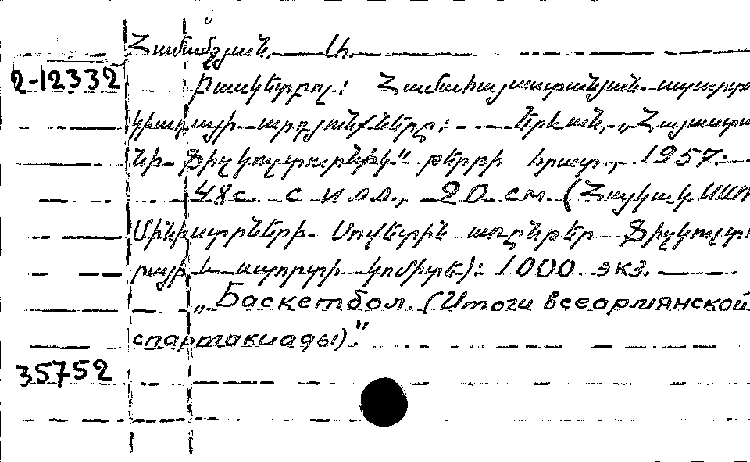 Համամչյան Ա.
2-12332
Բասկետբոլ: Համահայաստանյան սպարտ
կիադայի արդյունքները: Երևան, „Հայաստա
նի Ֆիզկուլտուրնիկ" թերթի հրատ., 1957.
48с. с илл., 20 см. (Հայկական ՍՍՌ
Մինիստրների Սովետին առընթեր Ֆիզկուլտ
րայի և սպորտի կոմիտե): 1000 экз.
„Баскетбол. (Итоги всеармянской
спартакиады)."
35752